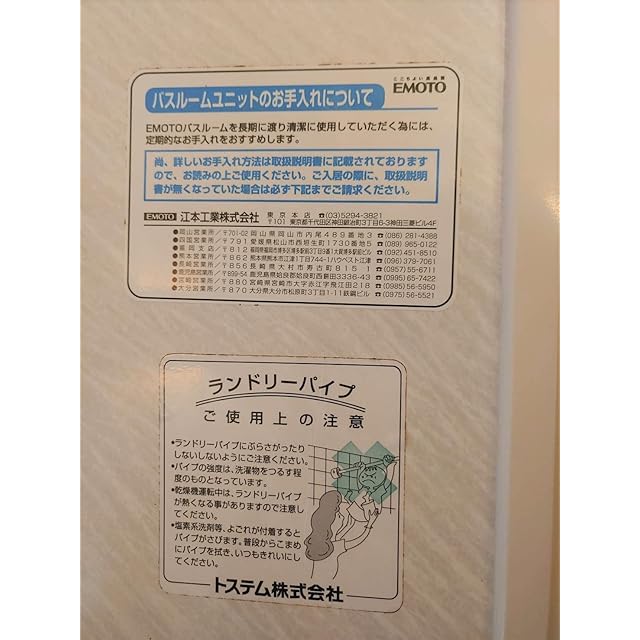 バスルームユニットのお手入れについて
ここちよい高品質
EMOTO
EMOTOバスルームを長期に渡り清潔に使用していただく為には、
定期的なお手入れをおすすめします。
尚、詳しいお手入れ方法は取扱説明書に記載されております
ので、お読みの上ご使用ください。ご入居の際に、取扱説明
書が無くなっていた場合は必ず下記までご請求ください。
EMOTO 江本工業株式会社 東京本店 ☎(03)5294-3821
〒101 東京都千代田区神田鍛冶町3丁目6-3神田三菱ビル4F
●岡山営業所/〒701-02 岡山県岡山市内尾489番地3 ☎(086)281-4388
●四国営業所/〒791 愛媛県松山市西垣生町1730番地5 ☎(089)965-0122
●福岡支店/〒812 福岡県福岡市博多区博多駅前3丁目9番1大賀博多駅前ビル ☎(092)451-8510
●熊本営業所/〒862 熊本県熊本市江津1丁目744-1ハウベスト江津 ☎(096)379-7061
●長崎営業所/〒856 長崎県大村市寿古町815-1 ☎(0957)55-6711
●鹿児島営業所/〒899-54 鹿児島県姶良郡姶良町西餅田3336-43 ☎(0995)65-7422
●宮崎営業所/〒880 宮崎県宮崎市大字赤江字飛江田218 ☎(0985)56-5950
●大分営業所/〒870 大分県大分市松原町3丁目1-11鉄鋼ビル ☎(0975)56-5521
ランドリーパイプ
ご使用上の注意
●ランドリーパイプにぶらさがったり
しないしないようにご注意ください。
●パイプの強度は、洗濯物をつるす程
度のものとなっています。
●乾燥機運転中は、ランドリーパイプ
が熱くなる事がありますので注意し
てください。
●塩素系洗剤等、よごれが付着すると
パイプがさびます。普段からこまめ
にパイプを拭き、いつもきれいにし
てください。
トステム株式会社